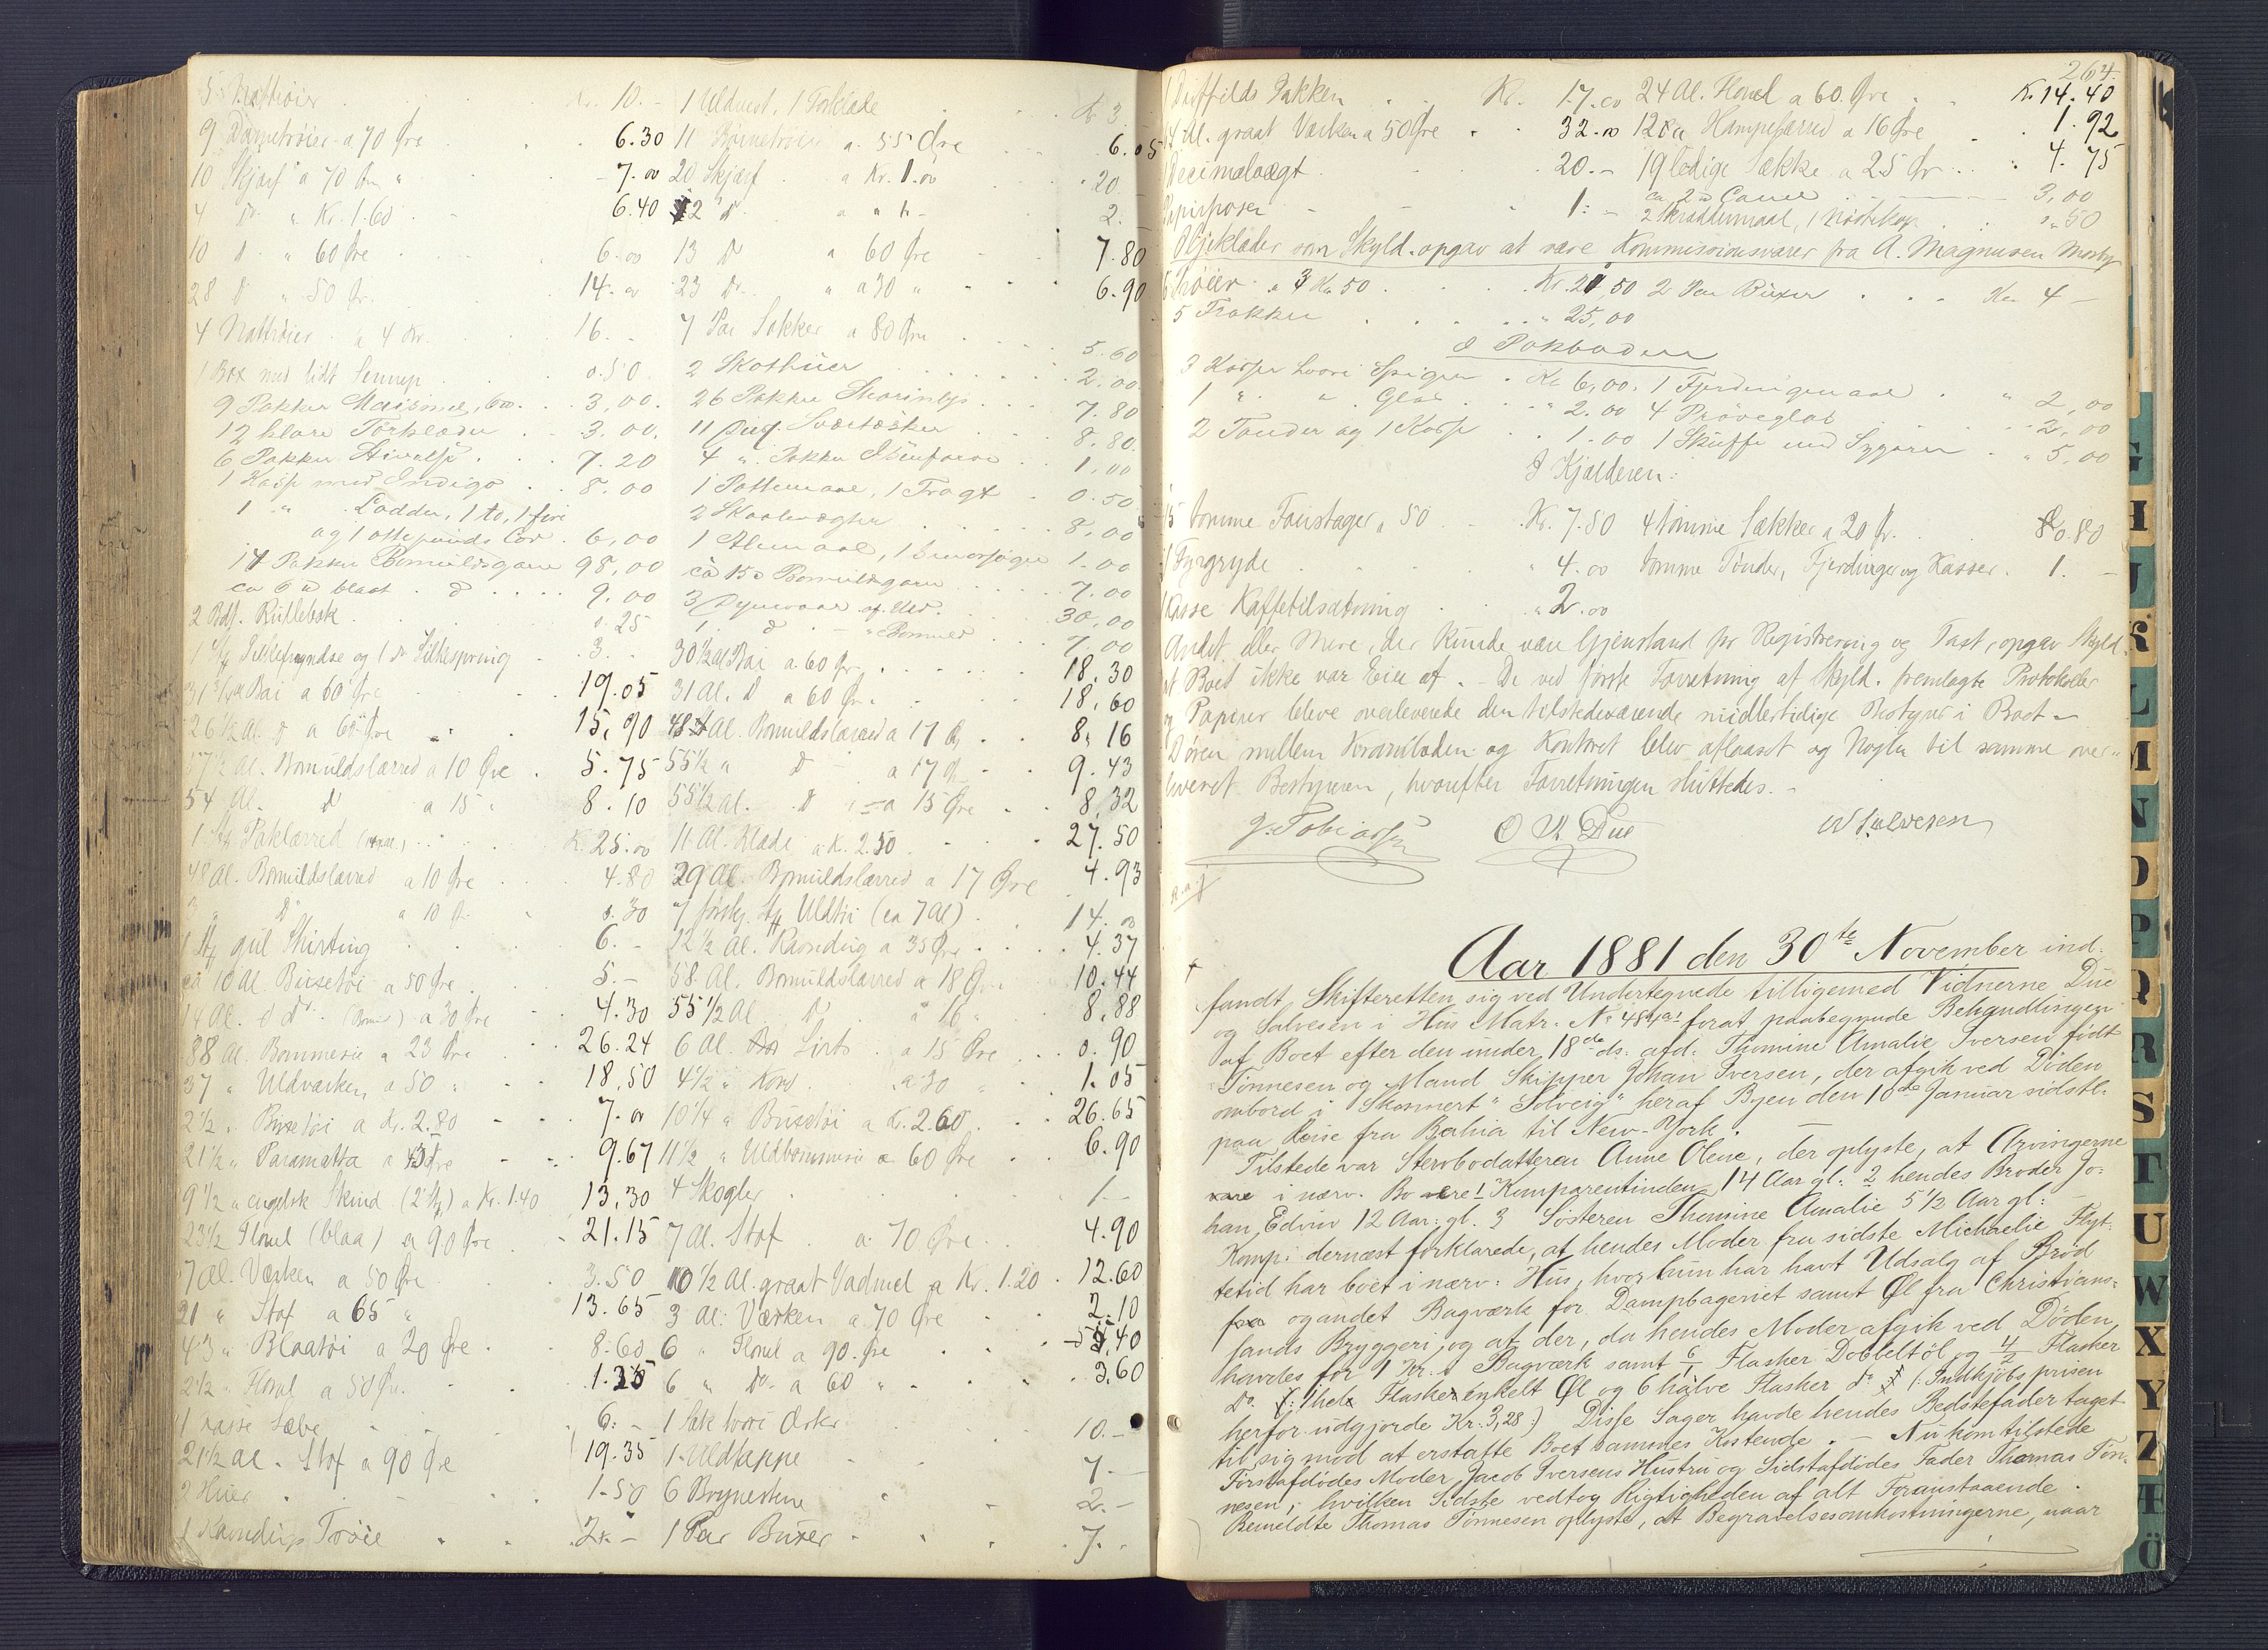 5 Nattrøier . . Kr. 10.-
9 Dametrøier a 70 Øre . . 6.30
10 Skjærf a 70 Øre " - 7.00
4 do " Kr. 1.60 - 6.40
10 d " 60 Øre . . 6.00
28 d " 50 Ør. 14.00
4 Nattrøier a 4 Kr. . 16.-
1 Box med lidt Sennep . 0.50
9 Pakker Maizena, . . 3,00.
12 klare Tørklæder . . 3.00.
6 Pakker Stivelse . . . 7.20
1 Kasse med Indigo . . 8.00
1 " Lodder, 1 to, 1 fire
og 1 otte punds Lod . 6,00
14 Pakker Bomuldsgarn 98,00
ca 6 ℔ blaat . d . . . . 9.00
2 Bdt. . 0.25
1 og 1 do Silkespring . 3.-
31 3/4 al Bai a 60 Øre . . 19.05
26 1/2 Al. d a 60 Øre . . 15,90
57 1/2 Al. Bomuldslærred a 10 Øre . 5.75
54 Al. d a 15 " 8.10
1 St Paklærred . . K. 25.00
48 Al. Bomuldslærred a 10 Øre . . 4.80
3 " d a 10 Ør . 0.30
1 St gul Shirting . . . 6.-
ca 10 Al. Buxetøi a 50 Øre . . 5.-
14 Al. d do (Bomuld) a 30 Øre 4.30
88 Al. Bommesie a 23 Øre . . 26.24
37 " Uldværken, a 50 " . 18,50
2 1/2 " Buxetøi a Kr. 2.80 - - 7.00
21 1/2 " Paramatta a 45 Øre - - 9.67
9 1/2 " engelsk Skind (2 St) a Kr. 1.40 13,30
23 1/2 Flonel (blaa) a 90 Øre . - 21.15
7 Al. Værken a 50 Øre . . 3.50
21 " Stof a 65 " . 13.65
43 " Blaatøi a 20 Øre . . 8.60
2 1/2 " Flonel a 50 Øre . - 1.25
1 Kasse Sæbe . . . 6.-
21 1/2 Al. Stof a 90 Øre 19.35
2 Huer . . . 1.50
1 Kamdugs Trøie . . . 2.-
1 Uldvest, 1 Tørklæde . . Kr 3.
11 Børnetrøier a 55 Øre . . 6.05
20 Skjærf a Kr. 1.00 . . 20.-
2 d a " " - . 2.-
13 d a 60 Øre - 7.80
23 do " a 30 " . . 6.90
7 Par Sokker a 80 Øre . . . 5.60
2 Skothuer . . . . 2.00.
26 Pakker Stearinlys . . . 7.80
11 Dus. Sværtæsker . . . 8.80
4 " Pakker . . 1,00
1 Pottemaal, 1 Tragt . 0.50
2 Skaalvægter . . . . . 8,00
1 Alenmaal, 1 1.00
ca 15 ℔ Bomuldsgarn . . 7.00
3 af Uld. . . 30,00
1 . d . - " Bomuld . . . 7.00
30 1/2 al Bai a 60 Ør. . . . . 18.30
31 Al. d a 60 Ør. . 18,60
48 Al. Bomuldslærred a 17 Ø . . 8,16
55 1/2 " d a 17 Ø - 9.43
55 1/2 al. . d " - a 15 Øre . 8,32
11 Al. Klæde a Kr. 2.50 . . . 27.50
29 Al. Bomuldslærred a 17 Øre 4.93
7 forskj. St Uldtøi (ca 7 Al) . 14.00
12 1/2 Al. Kamdug a 35 Øre . . . 4.37
58 Al. Bomuldslærred a 18 Øre 10.44
55 1/2 Al d . a 16 " . 8.88
6 Al. Sirts . a 15 Øre . . . 0.90
4 1/2 " Kord . a 30 " . 1.05
10 1/4 " Buxetøi a Kr. 2.60 . . . 26.65
11 1/2 " Uldbommesie a 60 Øre . 6.90
4 Skogler . . . 1.-
7 Al. Stof . a. 70 Øre . . 4.90
10 1/2 Al. graat Vadmel a Kr. 1.20 . 12.60
3 Al: Værken a 70 Øre . . 2.10
6 " Flonel a 90. Øre . . 5,40
6 " do. a 60 " . . . . 3.60
1 Sæk . . 10.-
1 Uldtæppe . . 7.-
6 Brynestene . - 2.-
1 Par Buxer . . . 7.-
264.
1 Duffilds Jakken . . Kr. 17.00 24 Al. Flonel a 60 Øre . . Kr. 14.40
64 Al. graat Værken a 50 Øre . . 32.00 12 Al Hampelærred a 16 Øre . . 1.92
1 Decimalvægt . . . 20.- 19 ledige Sække a 25 Ør . . . 4.75
Papirposer - - . 1:- ca 2 ℔ Canel . - - - 3,00
2 Skræddermaal, 1 . . : " 50
Øjeklæder som Skyld. opgav at være Kommissionsvarer fra A. Magnusen Mosby
6 Trøier a 3 Kr 50 . . . Kr. 21,50 2 Par Buxer . . . Kr 4 -
5 Frakker . . . . . " 25,00
I Pakboden
3 Kasser Spiger . Kr 6,00. 1 Fjerdingmaal . " 2,00
1 " " Glas . . " 2.00 4 Prøveglas . . " 2,00
2 Tønder og 1 Kasse . . 1.00 1 Skuffe med Sygarn . " 5,00
I Kjælderen:
15 tomme Foustager " 50 - Kr. 7.50 4 tomme Sækker a 20 Ør. . 0.80
1 Fyrgryde . . . " 4.00 tomme Tønder, Fjerdinger og Kasser . 1.-
1 Kasse Kaffetilsætning . . " 2.00
Andet eller Mere, der kunde være Gjenstand for Registrering og Taxt, opgav Skyld.
at Boet ikke var Eier af. - De ved første Forretning af Skyld. fremlagte Protokoller
og Papirer bleve overleverede den tilstedeværende midlertidige Bestyrer i Boet. -
Døren mellem Kramboden og Kontoret blev aflaaset og Nøglen til samme over-
leveret Bestyreren, hvorefter Forretningen sluttedes. -
J. Tobiassen O N Due W Salvesen
Aar 1881 den 30te November ind-
fandt Skifteretten sig ved Undertegnede tilligemed Vidnerne Due
og Salvesen i Hus Matr. No 484a1 forat paabegynde Behandlingen
af Boet efter den under 18de ds. afd. Thomine Amalie Iversen født
Tønnesen og Mand Skipper Johan Iversen, der afgik ved Døden
ombord i Skonnert "Solveig" heraf Byen den 10de Januar sidstl.
paa Reise fra Bahia til New-York. -
Tilstede var Stervbodatteren Anne Olene, der oplyste, at Arvingerne
i nærv. Bo ere 1 Komparentinden 14 Aar gl: 2 hendes Broder Jo-
han Edvin 12 Aar: gl. 3 Søsteren Thomine Amalie 5 1/2 Aar gl: -
Komp: dernæst forklarede, at hendes Moder fra sidste Michaelie Flyt-
tetid har boet i nærv: Hus, hvor hun har havt Udsalg af Brød
og andet Bagværk for Dampbageriet samt Øl fra Christians-
sands Bryggeri, og at der, da hendes Moder afgik ved Døden,
havdes for 1 Kr: i Bagværk samt 6/1 Flasker Dobbeltøl og 4/2 Flasker
Do. 1 hel Flaske enkelt Øl og 6 halve Flasker do (: Indkjøbsprisen
herfor udgjorde Kr: 3,28 :) Disse Sager havde hendes Bedstefader taget
til sig mod at erstatte Boet sammes Kostende. - Nu kom tilstede
Førstafdødes Moder, Jacob Iversens Hustru og Sidstafdødes Fader Thomas Tøn-
nesen, hvilken Sidste vedtog Rigtigheden af alt Foranstaaende.
Bemeldte Thomas Tønnesen oplyste, at Begravelsesomkostningerne, naar
G
H
I
J
K
L
M
N
O
P
Q
R
S
T
U
W
X
Y
Z
Æ
Ö